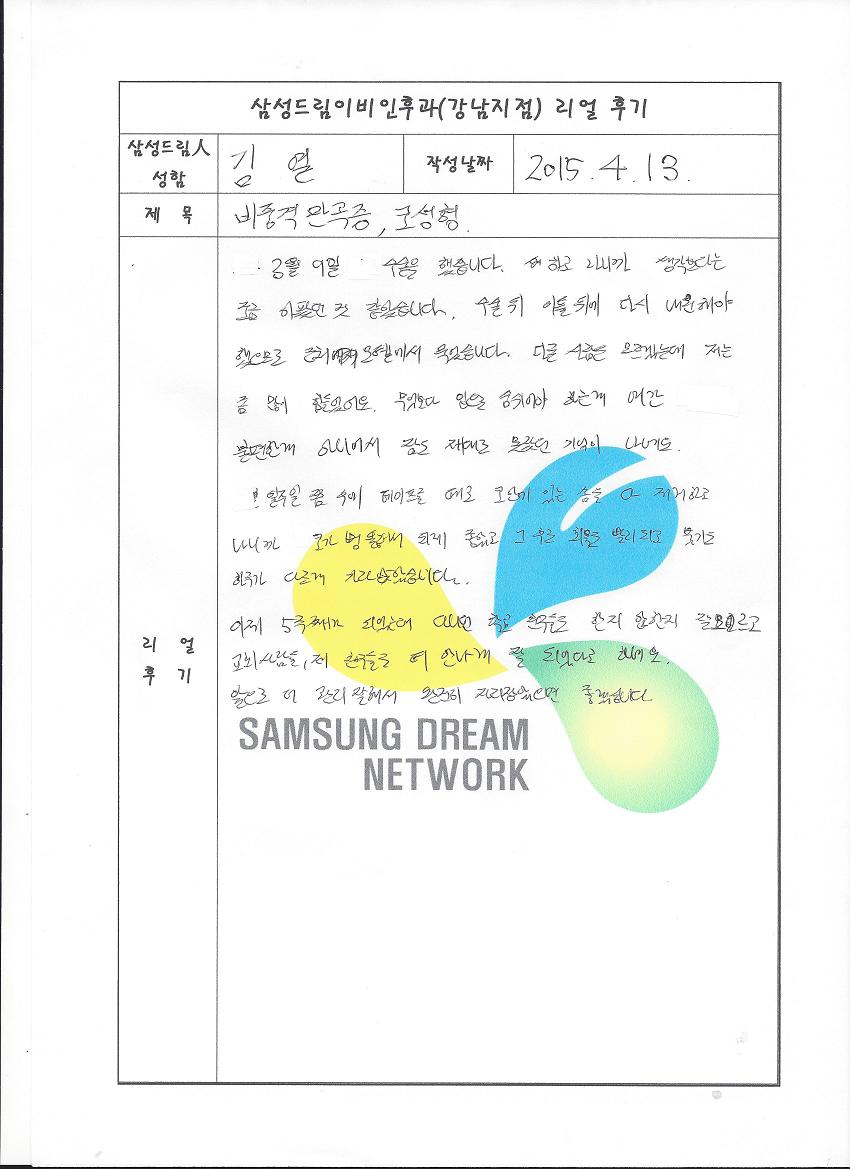 삼성드림이비인후과(강남지점) 리얼 후기
삼성드림人
성함
김 열
작성날짜
2015. 4. 13.
제 목
비중격만곡증, 코성형.
3월 9일 수술을 했습니다. 생각보다는
조금 아팠던 것 같았습니다. 수술 뒤 이틀 뒤에 다시 내원해야
했으므로 근처 모텔에서 묵었습니다. 다른 사람은 모르겠는데 저는
좀 많이 힘들었어요. 무엇보다 입으로 숨쉬어야 하는게 여간
불편한게 아니어서 잠도 제대로 못잤던 기억이 나네요.
일주일 쯤 후에 테이프를 떼고 코안에 있는 솜을 다 제거하고
나니까 코가 뻥 뚫려서 되게 좋았고 그 후로 회복도 빨리되고 붓기도
하루가 다르게 가라앉았습니다.
이제 5주째가 되었는데 학교 친구들은 한지 안한지 잘 모르고
교회사람들, 제 친구들은 티 안나게 잘 되었다고 하네요.
앞으로 더 관리 잘해서 완전히 자리잡았으면 좋겠습니다
리 얼
후 기
SAMSUNG DREAM
NETWORK